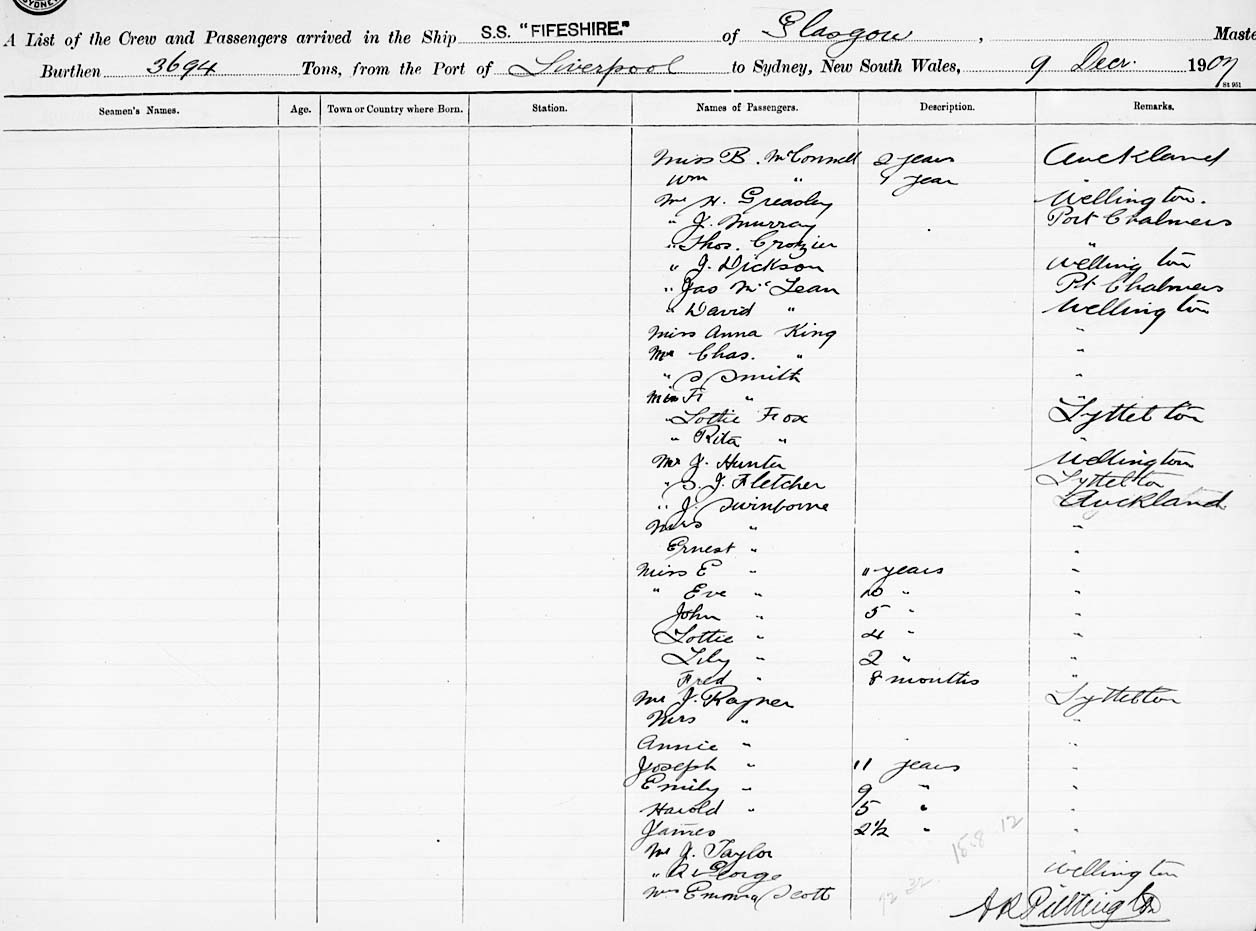 SYDNEY
A List of the Crew and Passengers arrived in the Ship S.S. "FIFESHIRE." of Glasgow, Maste
Burthen 3694 Tons, from the Port of Liverpool to Sydney, New South Wales, 9 Decr. 1907
St 951
Seamen's Names. Age. Town or Country where Born. Station. Names of Passengers. Description. Remarks.
Miss B. McConnell 2 years Auckland
Wm " 1 year
Mr H. Greasley Wellington.
" J. Murray Port Chalmers
" Thos. Crozier "
" J. Dickson Wellington
" Jas McLean Pt Chalmers
" David " Wellington
Miss Anna King "
Mr Chas. " "
" S Smith "
Miss Fr "
" Lottie Fox Lyttelton
" Rita "
Mr J. Hunter Wellington
" S. J. Fletcher Lyttelton
" J. Swinborne Auckland
Mrs " "
Ernest " "
Miss E " 11 years "
" Eve " 10 " "
John " 5 " "
Lottie " 4 " "
Lily " 2 " "
Fred " 8 months "
Mr J. Rayner Lyttelton
Mrs " "
Annie " "
Joseph " 11 years "
Emily " 9 " "
Harold " 5 " "
James 2½ " "
Mr J. Taylor
" George Wellington
Mrs Emma Scott "
15.8.12